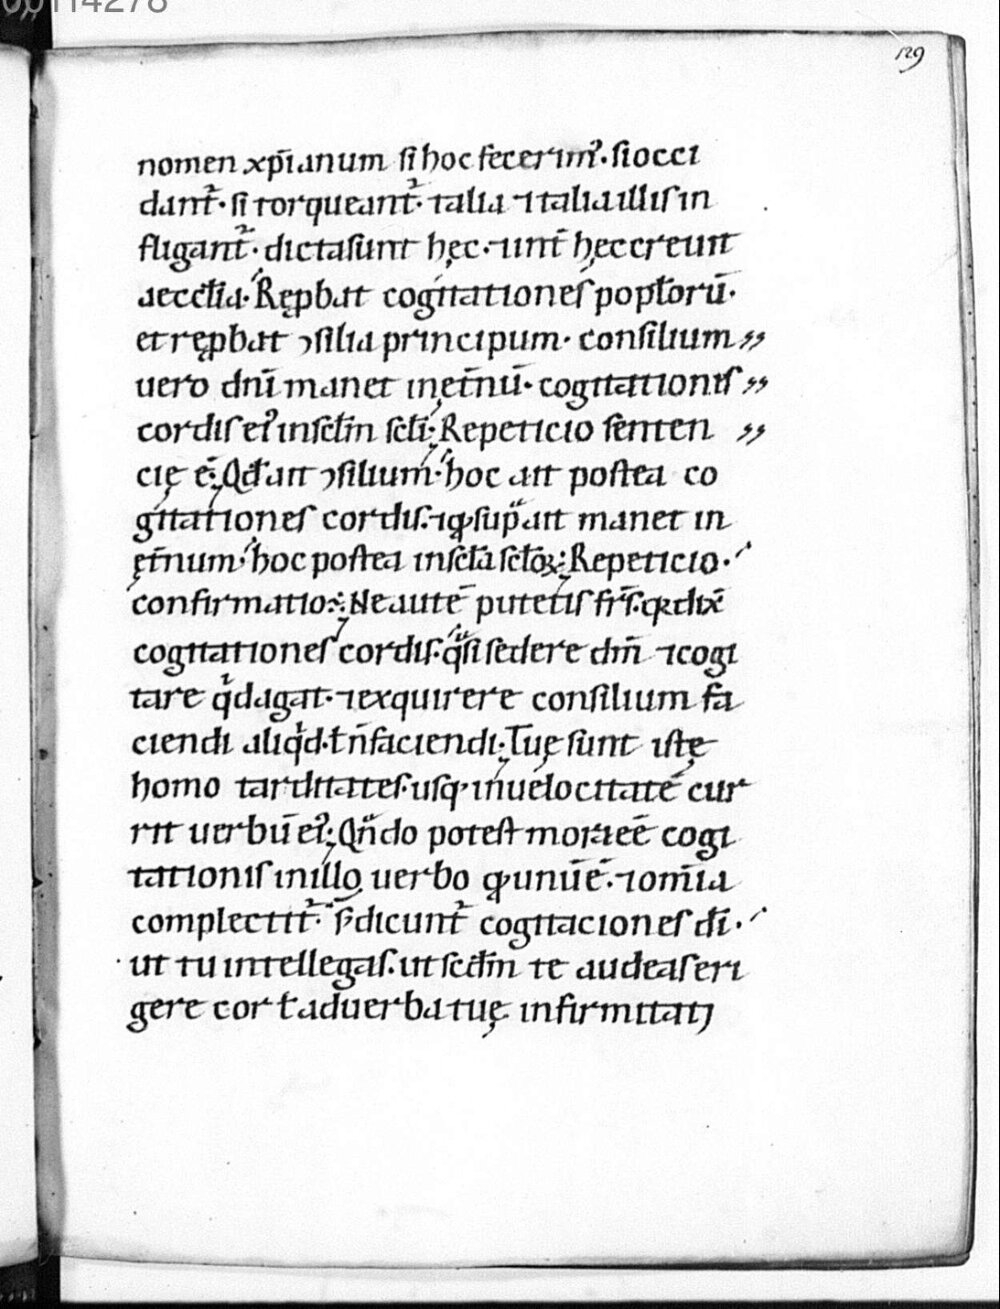 00114278
129
nomen xp̄ianum si hoc fecerim᷒· si occi
dant᷒· si torqueant᷒· talia ⁊ talia illis in
fligant᷒· dictasunt hęc· ⁊ unt̄ hęc creuit
aeccłia· Rępbat cogitationes popłorū·
et rępbat ɔsilia principum· consilium
uero dn̄i manet inęt̄nū· cogitationis
cordis ei᷒ insc̄łm scłi; Repeticio senten
cię ē; Qđ ait ɔsilium· hoc ait postea co
gitationes cordis· ⁊ qꝫ sup̄ ait manet in
ęt̄num· hoc postea inscła scłoꝝ; Repeticio·
confirmatio ÷; Ne autē putetis fr̄s· qꝛ dix̄
cogitationes cordis· q̄si sedere dm̄ ⁊ cogi
tare qͥd agat· ⁊ exquirere consilium fa
ciendi aliqͥd· ł n̄ faciendi; Tuę sunt istę
homo tarditates· usqꝫ inuelocitatē cur
rit uerbū ei᷒; Qn̄do potest mora eē cogi
tationis in illo uerbo qꝫ unū ē· ⁊ om̄ia
complectit᷒· S; dicunt᷒ cogitaciones dī·
ut tu intellegas· ut scd̄m te audeas eri
gere cor ł aduerba tuę infirmitatj